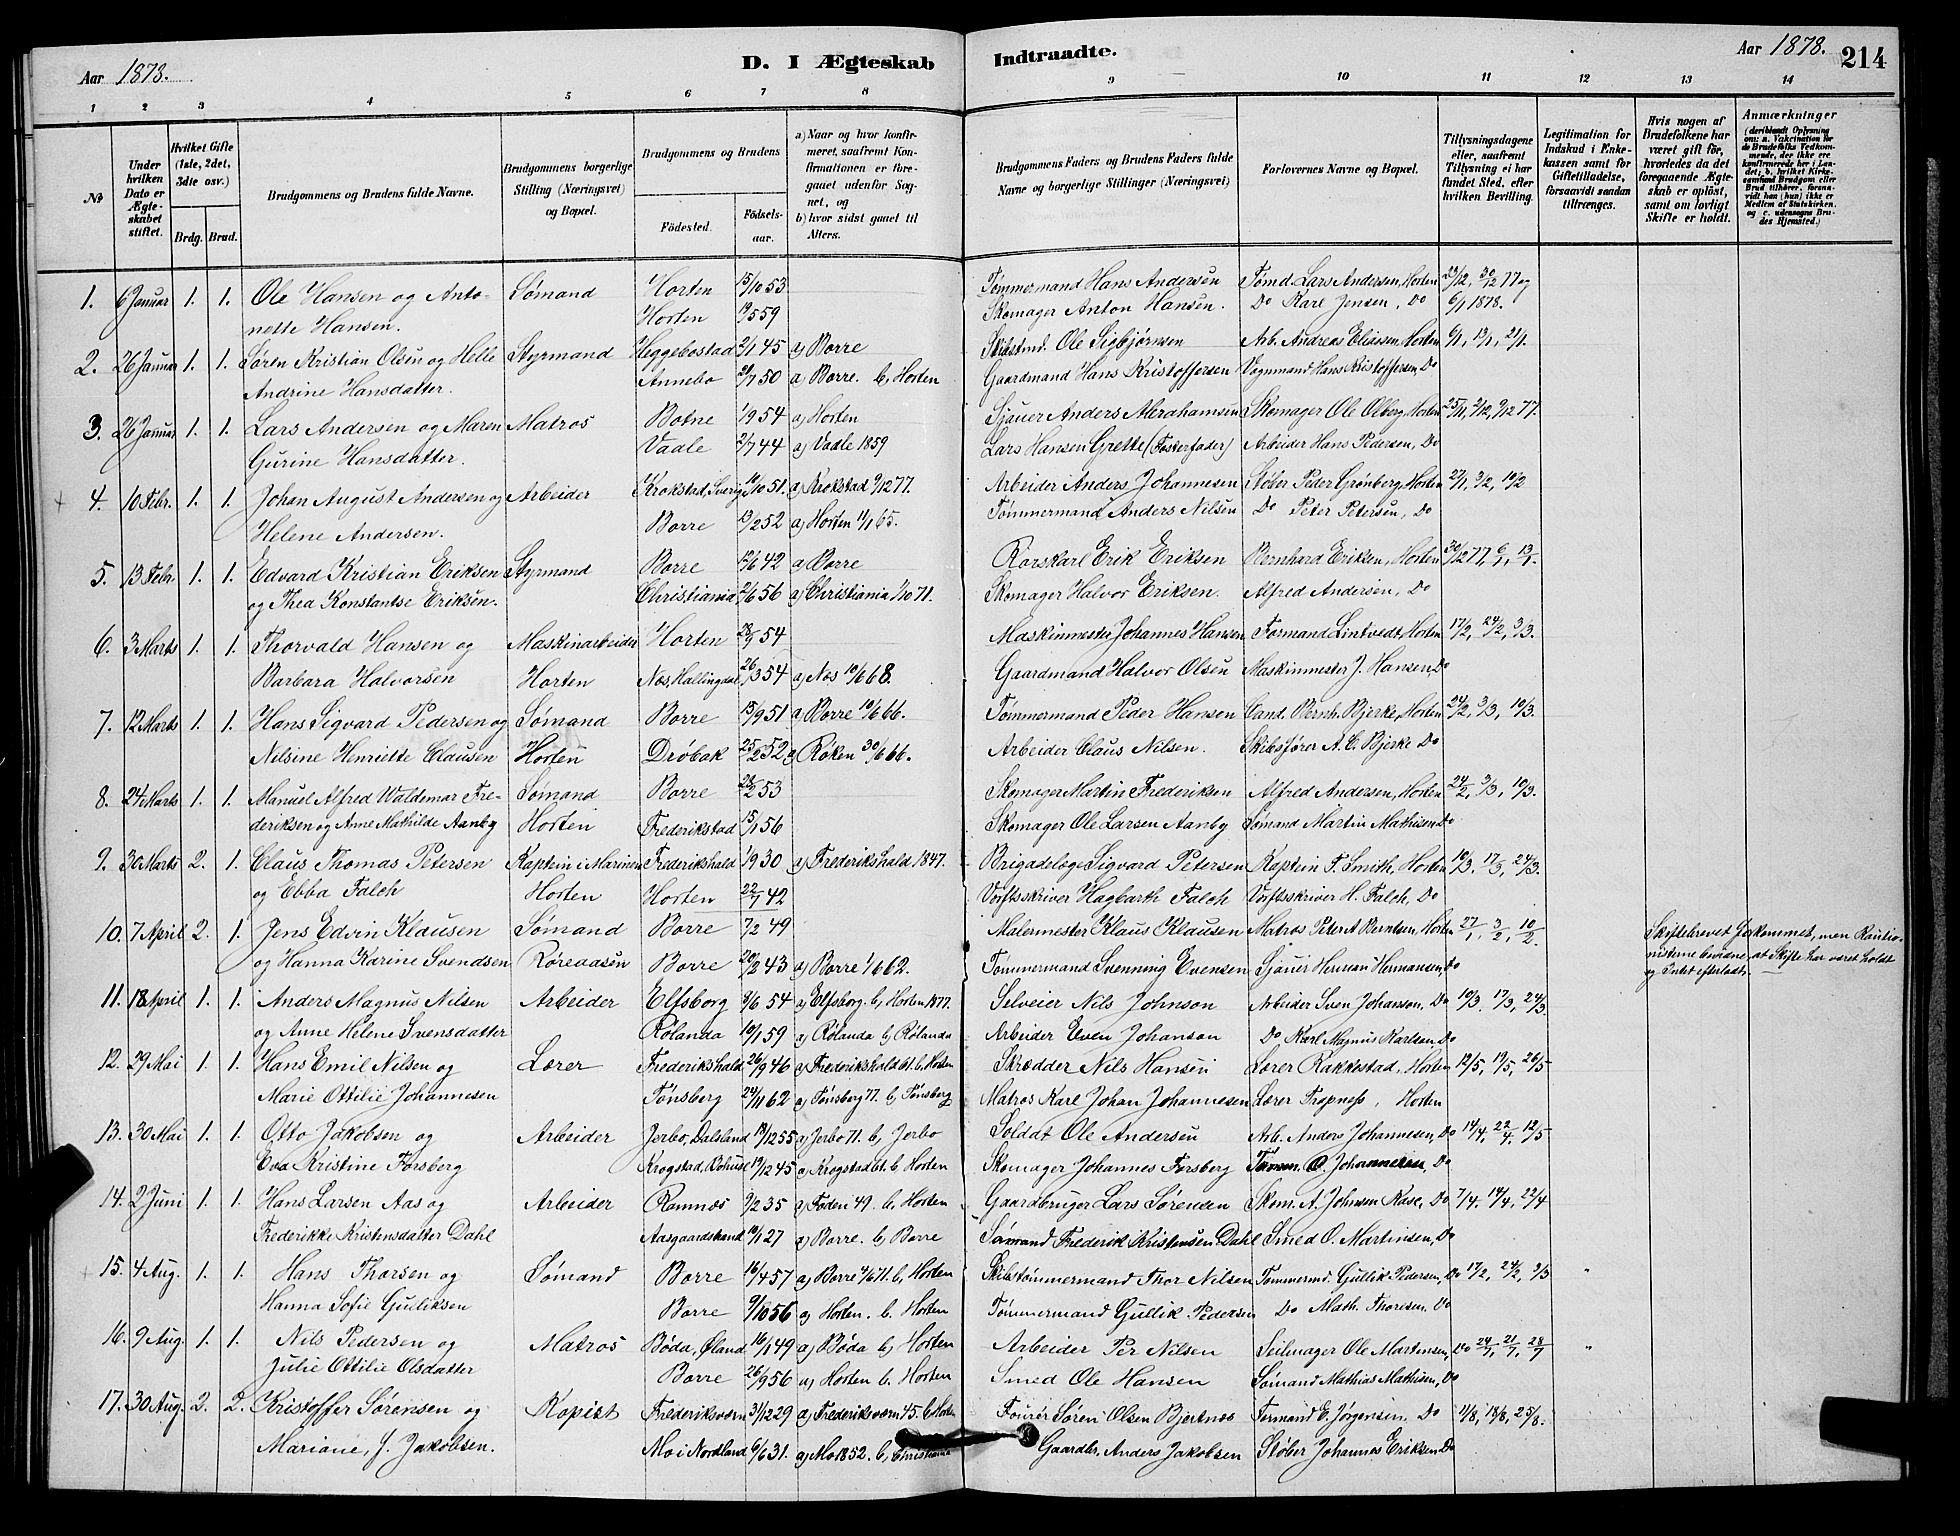 Aar 1878.
D. I Ægteskab Indtraadte.
Aar 1878.
214
1 2 3 4 5 6 7 8 9 10 11 12 13 14
No
Under hvilken Dato er Ægteskabet stiftet.
Hvilket Gifte (1ste, 2det, 3die osv.)
Brdg. Brud.
Brudgommens og Brudens fulde Navne.
Brudgommens borgerlige Stilling (Næringsvei) og Bopæl.
Brudgommens og Brudens
Födested.
Födselsaar.
a) Naar og hvor konfirmeret, saafremt Konfirmationen er foregaaet udenfor Sognet, og
b) hvor sidst gaaet til Alters.
Brudgommens Faders og Brudens Faders fulde Navne og borgerlige Stillinger (Næringsvei)
Forlovernes Navne og Bopæl.
Tillysningsdagene eller, saafremt Tillysning ei har fundet Sted, efter hvilken Bevilling.
Legitimation for Indskud i Enkekassen samt for Giftetilladelse, forsaavidt saadan tiltrænges.
Hvis nogen af Brudefolkene har været gift för, hvorledes da det foregaaende Ægteskab er oplöst, samt om lovligt Skifte er holdt.
Anmærkninger
(deriblandt Oplysning om: a. Vakcination for de Brudefolks Vedkommende, der ikke ere konfirmerede her i Landet; b. hvilket Kirkesamfund Brudgom eller Brud tilhörer, forsaavidt han (hun) ikke er Medlem af Statskirken, og c. udensogns Brudes Hjemsted.)
1. 6 Januar 1. 1. Ole Hansen og Anto- Sømand Horten 15/10 53 Tømmermand Hans Andersen Tømd. Lars Andersen, Horten 23/12, 30/12 77 og
nette Hansen. Horten 19/5 59 Skomager Anton Hansen. Do Karl Jensen, Do 6/1 1878.
2. 26 Januar 1. 1. Søren Kristian Olsen og Helle Styrmand Heggebostad 2/1 45 a) Borre Skibstmd. Ole Sigbjørnsen Arb. Andreas Eliassen, Horten 6/1, 13/1, 21/1.
Andrine Hansdatter. Annebo 21/7 50 a) Borre. b, Horten Gaardmand Hans Kristoffersen Vognmand Hans Kristoffersen, Do
3. 26 Januar 1. 1. Lars Andersen og Maren Matros Botne 1/9 54 a) Horten Sjauer Anders Abrahamsen Skomager Ole Olberg, Horten 25/11, 2/12, 9/12 77.
Gurine Hansdatter. Vaale 2/7 44 a) Vaale 1859 Lars Hansen Grette (Fosterfader) Arbeider Hans Pedersen, Do
4. 10 Febr. 1. 1. Johan August Andersen og Arbeider Krokstad, Sverig 10/10 51. a) Krokstad 9/12 77. Arbeider Anders Johannesen Støber Peder Grønberg, Horten 27/1, 3/2, 10/2
Helene Andersen. Borre 13/2 52 a) Horten 11/1 65. Tømmermand Anders Nilsen Do Peter Petersen, Do
5. 13 Febr. 1. 1. Edvard Kristian Eriksen Styrmand Borre 12/6 42 a) Borre Rorskarl Erik Eriksen Bernhard Eriksen, Horten 30/12 77, 6/1, 13/1.
og Thea Konstantse Eriksen. Christiania 2/6 56 a) Christiania 1/10 71. Skomager Halvor Eriksen. Alfred Andersen, Do
6. 3 Marts 1. 1. Thorvald Hansen og Maskinarbeider Horten 28/9 54 Maskinmester Johannes Hansen Formand Lintvedt, Horten 17/2, 24/2, 3/3.
Barbara Halvorsen Horten Næs, Hallingdal 26/3 54 a) Næs 10/6 68. Gaardmand Halvor Olsen Maskinmester J. Hansen, Do
7. 12 Marts 1. 1. Hans Sigvard Pedersen og Sømand Borre 15/9 51 a) Borre 10/6 66. Tømmermand Peder Hansen Cand. Bernh. Bjerke, Horten 24/2, 3/3, 10/3.
Nilsine Henriette Clausen Horten Drøbak 25/2 52 a) Røken 30/6 66. Arbeider Claus Nilsen. Skibsfører A. C. Bjerke Do
8. 24 Marts 1. 1. Manuel Alfred Waldemar Fre- Sømand Borre 28/2 53 Skomager Martin Frederiksen Alfred Andersen, Horten 24/2, 3/3, 10/3.
deriksen og Anne Mathilde Aanby Horten Frederikstad 15/1 56 Skomager Ole Larsen Aanby Sømand Martin Mathisen, Do
9. 30 Marts 2. 1. Claus Thomas Petersen Kaptein i Marinen Frederikshald 1/9 30 a) Frederikshald 1847. Brigadelæge Sigvard Petersen Kaptein F. Smith, Horten 10/3, 17/3, 24/3.
og Ebba Falch Horten Horten 22/7 42 Værftsskriver Hagbarth Falch Værftsskriver H. Falch, Do
10. 7 April 2. 1. Jens Edvin Klausen Sømand Borre 7/2 49 Malermester Klaus Klausen Matros Peter A Berntsen, Horten 27/1, 3/2, 10/2. Skiftebrevet forkommet, men Kautio-
og Hanna Karine Svendsen Røreaasen Borre 20/2 43 a) Borre 1/6 62. Tømmermand Svenning Evensen Sjauer Herman Hermansen, Do nisterne bevidne, at Skifte har været holdt
og Intet efterladt.
11. 18 April 1. 1. Anders Magnus Nilsen Arbeider Elfsborg 9/6 54 a) Elfsborg. b, Horten 1877. Selveier Nils Johnson Arbeider Sven Johanson, Do 10/3, 17/3, 24/3
og Anne Helene Svensdatter Rølanda 10/1 59 a) Rølanda b, Rølanda Arbeider Even Johanson Do Karl Magnus Karlsen, Do
12. 29 Mai 1. 1. Hans Emil Nilsen og Lærer Frederikshald 26/9 46 a) Frederikshald 61. b, Horten Skrædder Nils Hansen Lærer Rakkestad, Horten 12/5, 19/5, 26/5
Marie Ottilie Johannesen Tønsberg 24/11 62 a) Tønsberg 77. b, Tønsberg Matros Karl Johan Johannesen Lærer Tropness, Horten
13. 30 Mai 1. 1. Otto Jakobsen og Arbeider Jerbo, Dalsland 19/12 55 a) Jerbo 71. b, Jerbo Soldat Ole Andersen Arb. Anders Johannesen, Do 14/4, 22/4, 12/5
Eva Kristine Forsberg Krogstad, Bohusl 19/12 45 a) Krogstad 61. b. Horten Skomager Johannes Forsberg Tømm. O. Johannesen, Do
14. 2 Juni 1. 1. Hans Larsen Aas og Arbeider Ramnæs 9/2 35 a) Foden 49. b, Horten Gaardbruger Lars Sørensen Skom. A. Johnsen Kase, Do 7/4, 14/4, 22/4
Frederikke Kristensdatter Dahl Aasgaardstrand 10/1 27 a) Borre. b) Borre Sømand Frederik Kristensen Dahl Smed O. Martinsen, Do
15. 4 Aug. 1. 1. Hans Thorsen og Sømand Borre 16/4 57 a) Borre 4/6 71. b, Horten Skibstømmermand Thor Nilsen Tømmermd. Gullik Pedersen, Do 17/2, 24/2, 3/3
Hanna Sofie Gulliksen Borre 9/10 56 a) Horten. b. Horten Tømmermand Gullik Pedersen Do Math. Thoresen. Do
16. 9 Aug. 1. 1. Nils Pedersen og Matros Bøda, Øland 16/1 49 a) Bøda b) Horten Arbeider Per Nilsen Seilmager Ole Martinsen, Do 24/7, 21/7, 28/7
Julie Ottilie Olsdatter Borre 26/9 56 a) Horten b. Horten Smed Ole Hansen Sømand Mathias Mathisen, Do
17. 30 Aug. 2. 2. Kristoffer Sørensen og Kopist Frederiksværn 31/12 29 a) Frederiksværn 45. b, Horten Fourér Søren Olsen Bjertnæs Formand E. Jørgensen. Do 11/8, 18/8, 25/8.
Mariane, f. Jakobsen. Mo i Nordland 6/6 31. a) Mo 1852. b, Christiania Gaardbr. Anders Jakobsen Støber Johannes Eriksen, Do